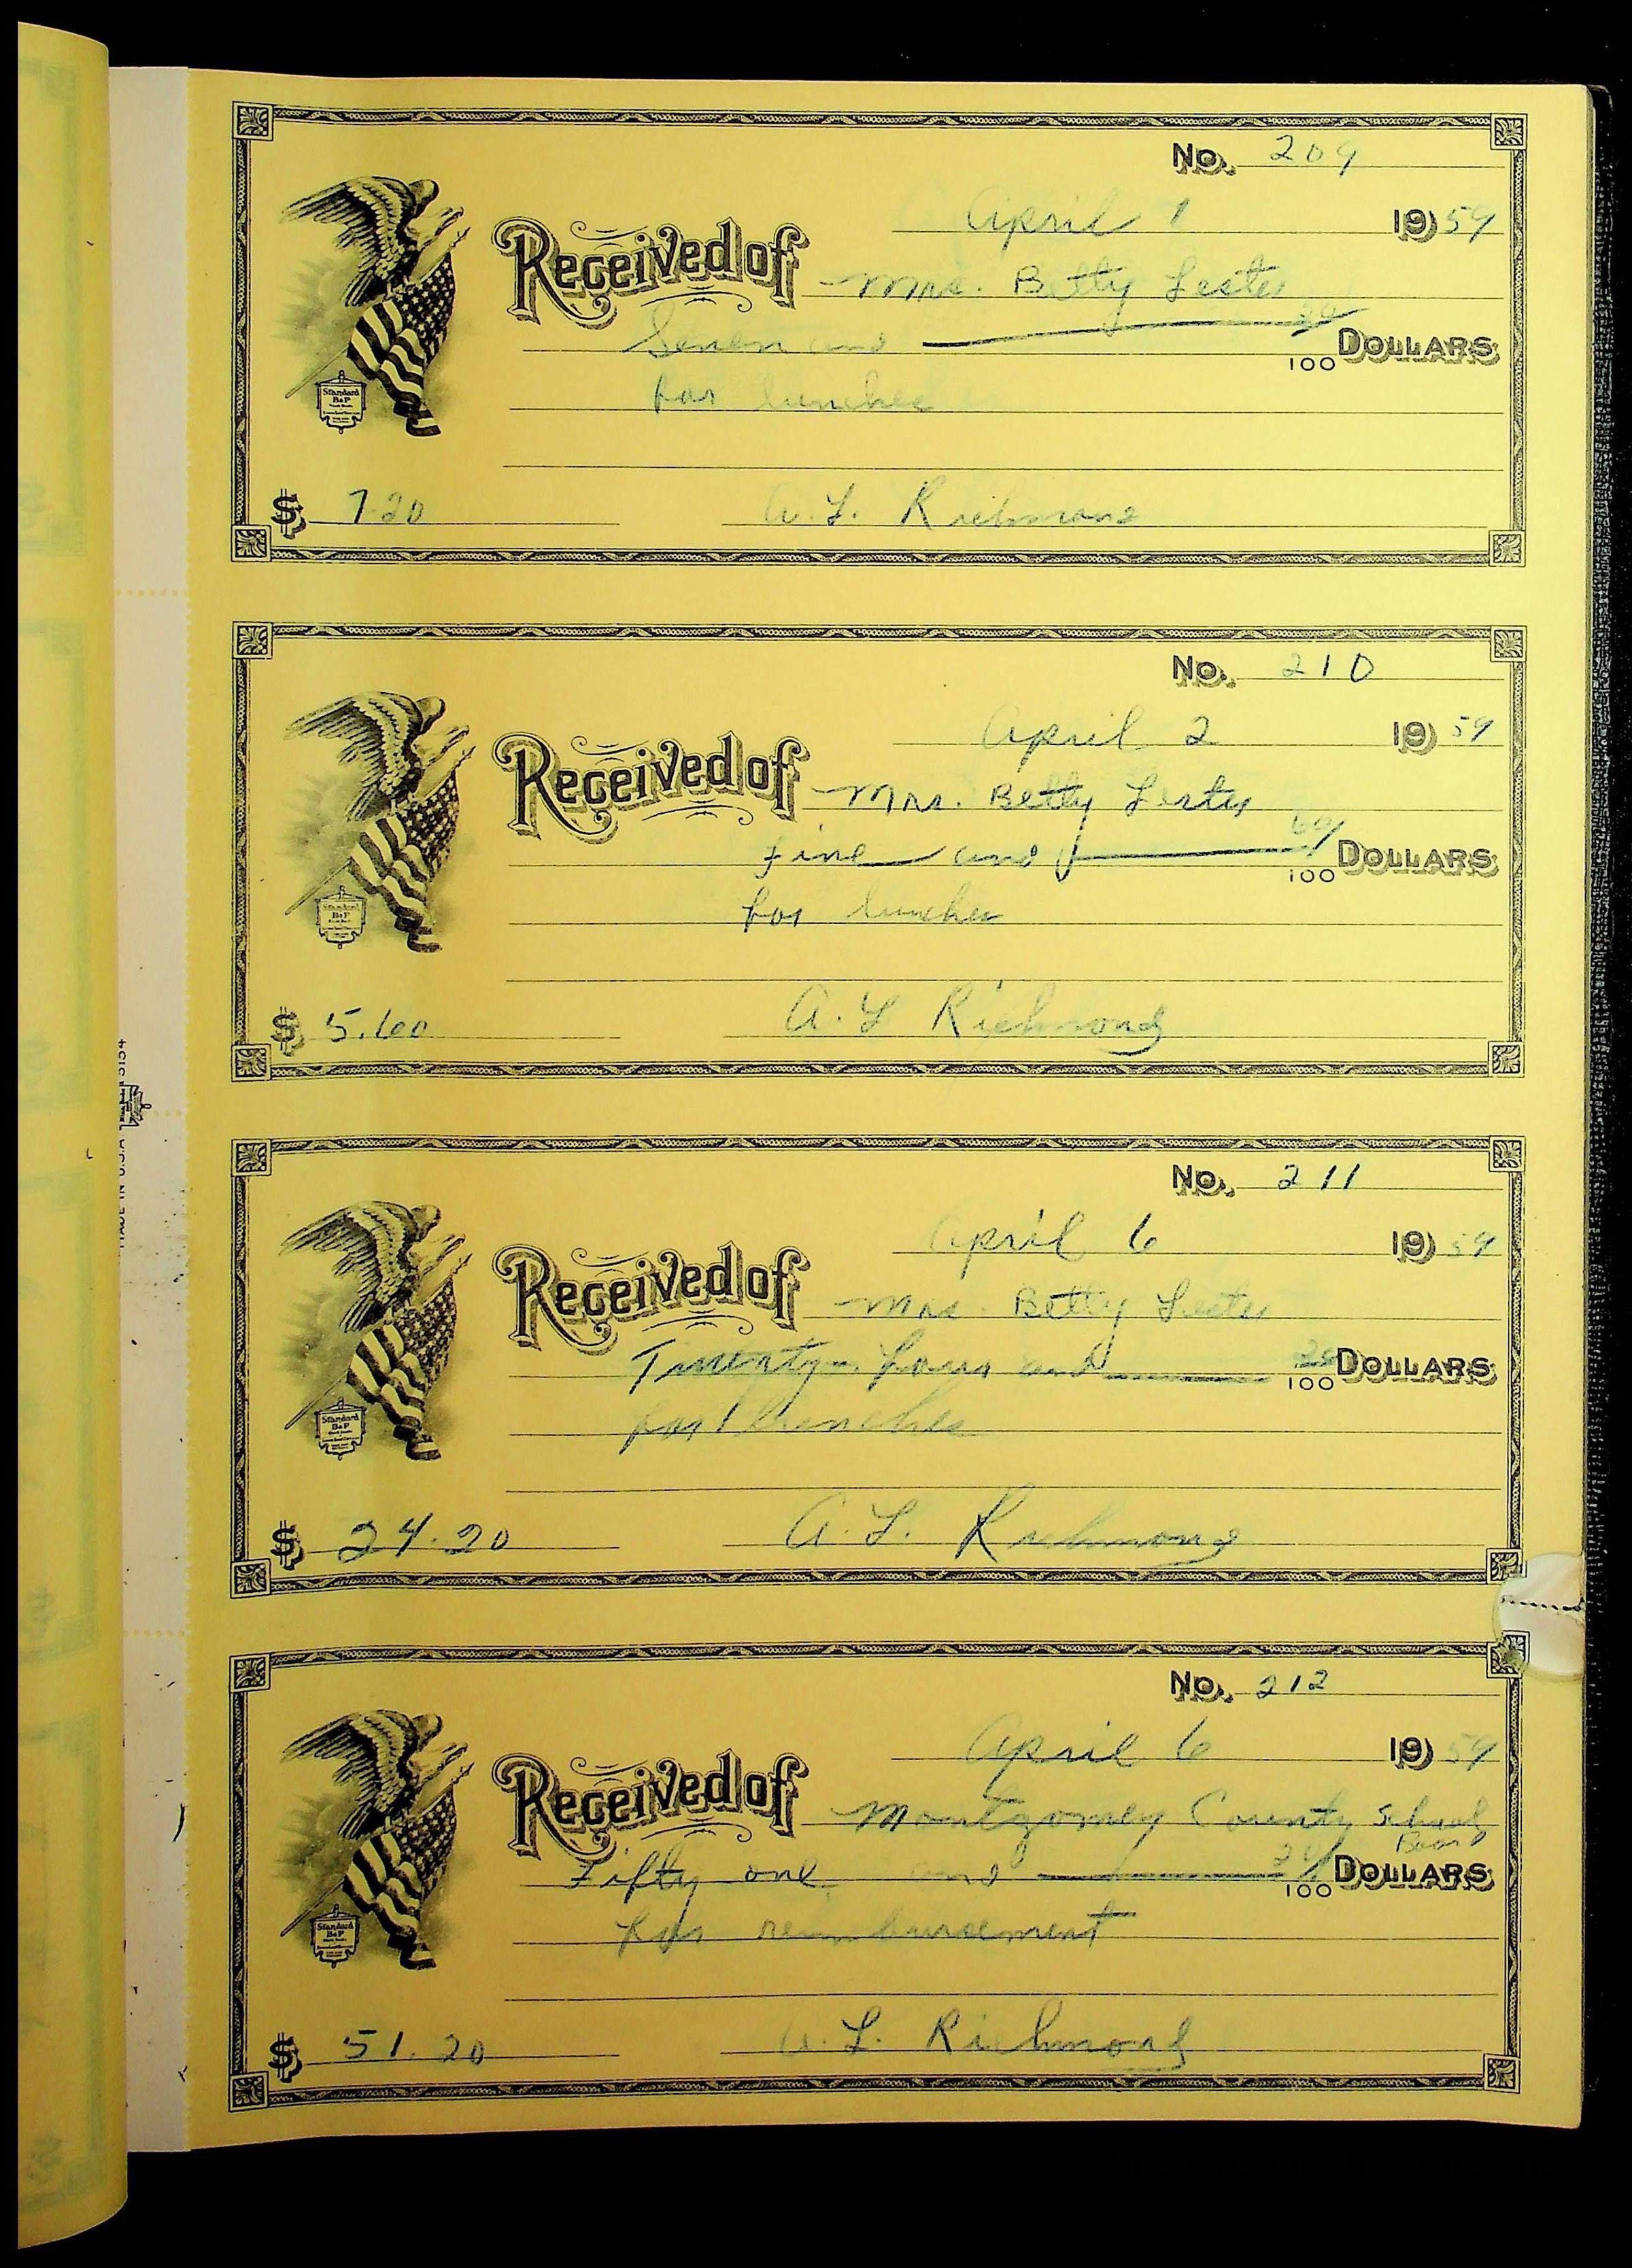 No. 209
April 1 1959
Received of Mrs. Betty Lester
Seven and 20/100 DOLLARS
for lunches
$ 7.20 A. L. Richmond
Standard
B&P
No. 210
April 2 1959
Received of Mrs. Betty Lester
Five and 60/100 DOLLARS
for lunches
$ 5.60 A. L Richmond
Standard
B&P
No. 211
April 6 1959
Received of Mrs. Betty Lester
Twenty-four and 20/100 DOLLARS
for lunches
$ 24.20 A. L. Richmond
Standard
B&P
No. 212
April 6 1959
Received of Montgomery County School
Board
Fifty one and 20/100 DOLLARS
for reimbursement
$ 51.20 A. L. Richmond
Standard
B&P
MADE IN U.S.A.